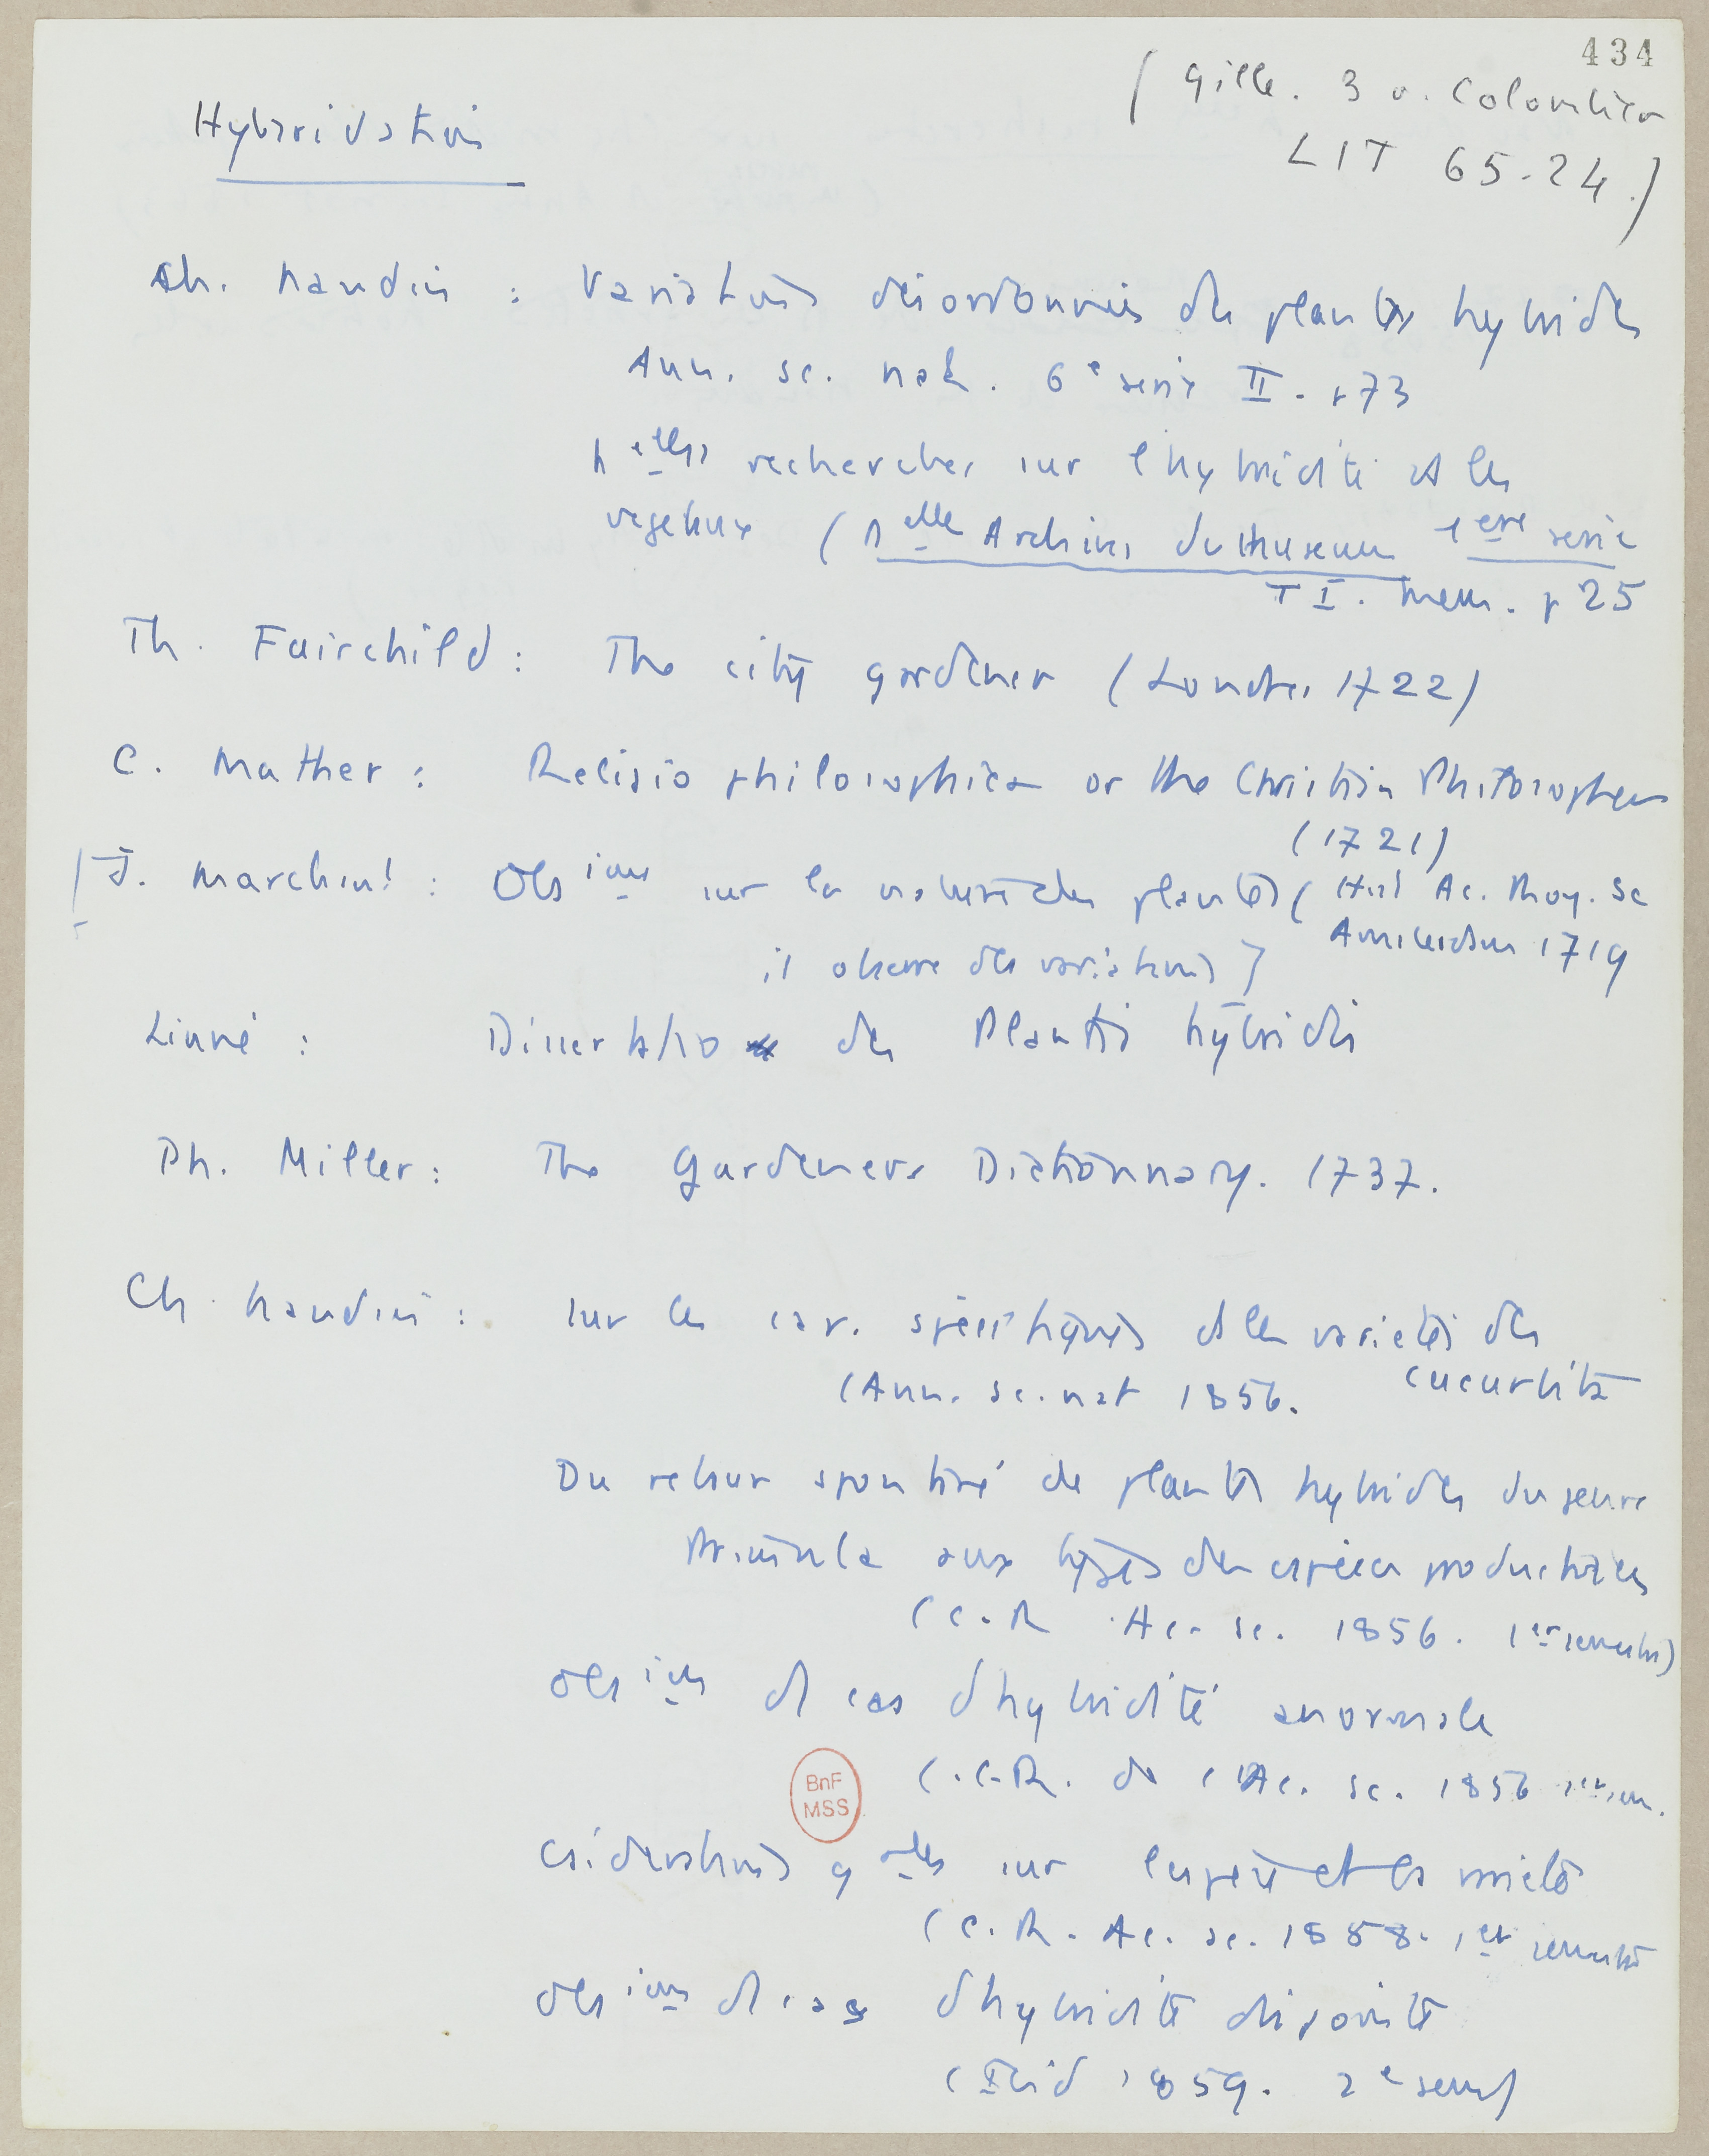 434
( Gille. 3 v. Colombier
LIT 65-24.)
Hybridation
Ch. Naudin : Variations désordonnées des plantes hybrides
Ann. sc. nat. 6e serie II. p 73
Nelles recherches sur l'hybridité et les
vegetaux (Nelle Archives du Museum 1ere serie
T I. Mem. p 25
Th. Fairchild : The city gardener (Londres 1722)
C. Mather : Religio philosophica or the Christian Philosopher
(1721)
J. Marchant : Obsions sur la nature des plantes ( Hist Ac. Roy. Sc
Amsterdam 1719
il observe des variations)
Linné : Dissertatio de Plantis hybridis
Ph. Miller : The Gardeners Dictionnary. 1737.
Ch. Naudin : sur les car. spécifiques et les varietés des
cucurbita
(Ann. sc. nat 1856.
Du retour spontané de plantes hybrides du genre
Primula aux types des espèces productrices
(C.R Ac. sc. 1856. 1er semestre)
obsions et cas d'hybridité anormale
(.C.R. de l'Ac. sc. 1856 1er sem.
Csidérations gales sur l'espèce et la variété
(C.R. Ac. sc. 1858. 1er semestre
obsions et cas d'hybridité disjointe
(Ibid 1859. 2e sem)
BnF
MSS